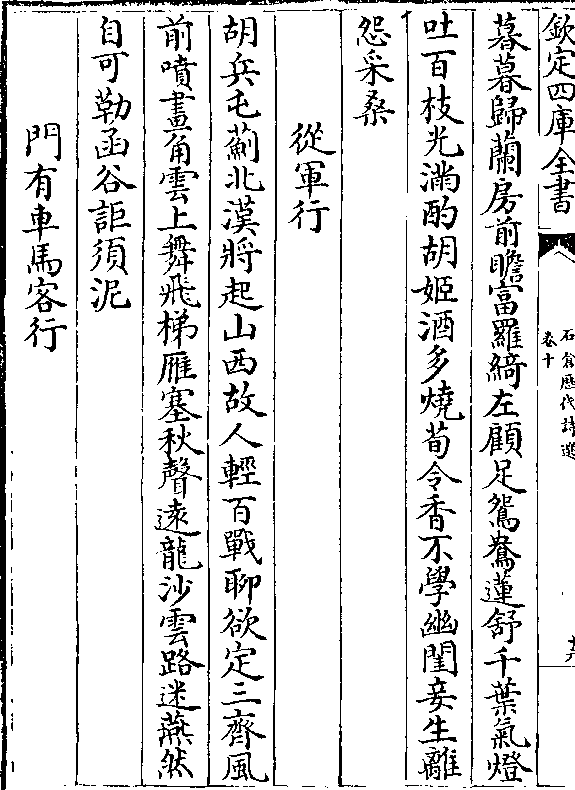 欽定四庫全書
石倉歷代詩選
卷十
十六
暮暮歸蘭房前瞻富羅綺左顧足鴛鴦蓮舒千葉氣燈
吐百枝光滿酌胡姬酒多燒荀令香不學幽閨妾生離
怨采桑
從軍行
胡兵屯薊北漢將起山西故人輕百戰聊欲定三齊風
前噴畫角雲上舞飛梯雁塞秋聲遠龍沙雲路迷燕然
自可勒函谷詎須泥
門有車馬客行